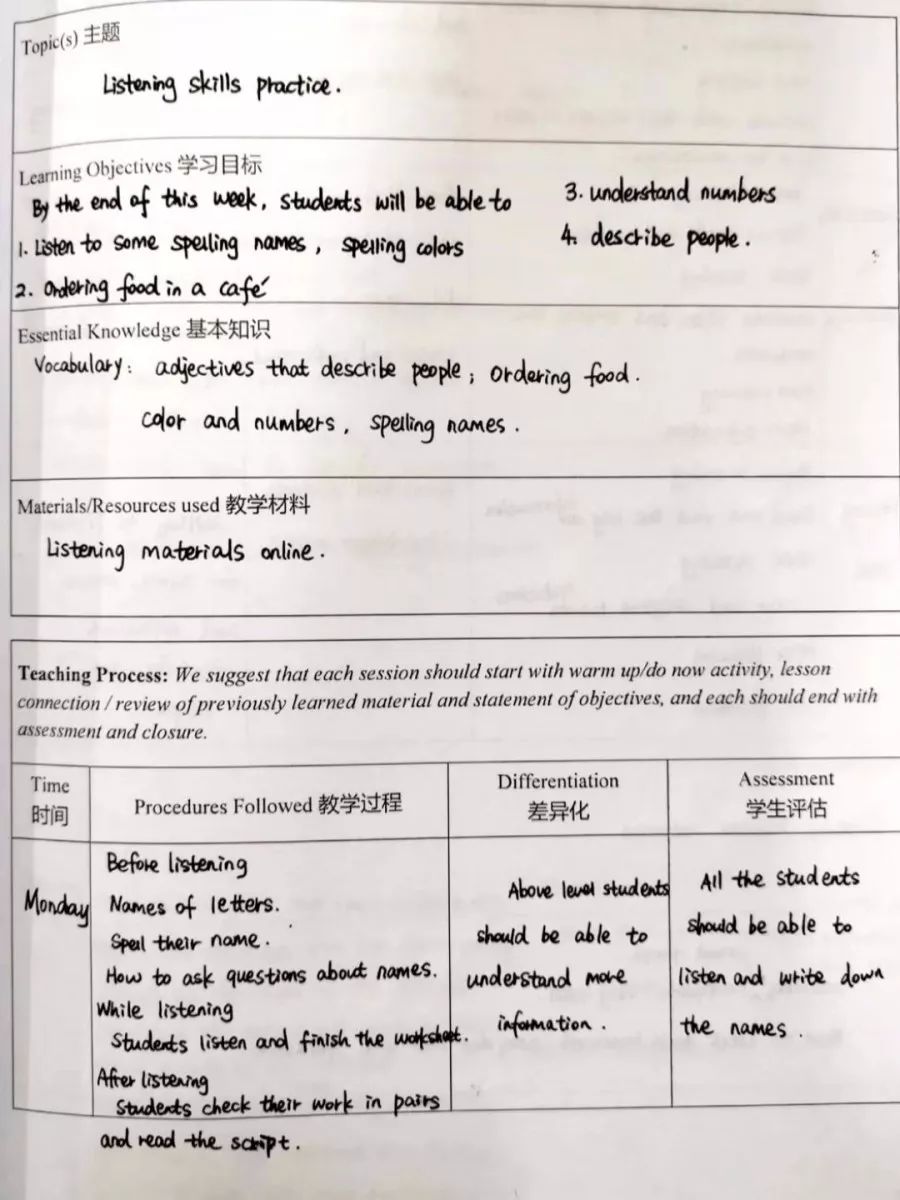 Topic(s) 主题
Listening skills practice.
Learning Objectives 学习目标
By the end of this week, students will be able to
1. Listen to some spelling names, spelling colors
2. Ordering food in a café
3. understand numbers
4. describe people.
Essential Knowledge 基本知识
Vocabulary: adjectives that describe people; ordering food.
color and numbers, spelling names.
Materials/Resources used 教学材料
Listening materials online.
Teaching Process: We suggest that each session should start with warm up/do now activity, lesson
connection / review of previously learned material and statement of objectives, and each should end with
assessment and closure.
Time
时间
Procedures Followed 教学过程
Differentiation
差异化
Assessment
学生评估
Monday
Before listening
Names of letters.
Spell their name.
How to ask questions about names.
While listening
Students listen and finish the worksheet.
After listening
Students check their work in pairs
and read the script.
Above level students
should be able to
understand more
information.
All the students
should be able to
listen and write down
the names.